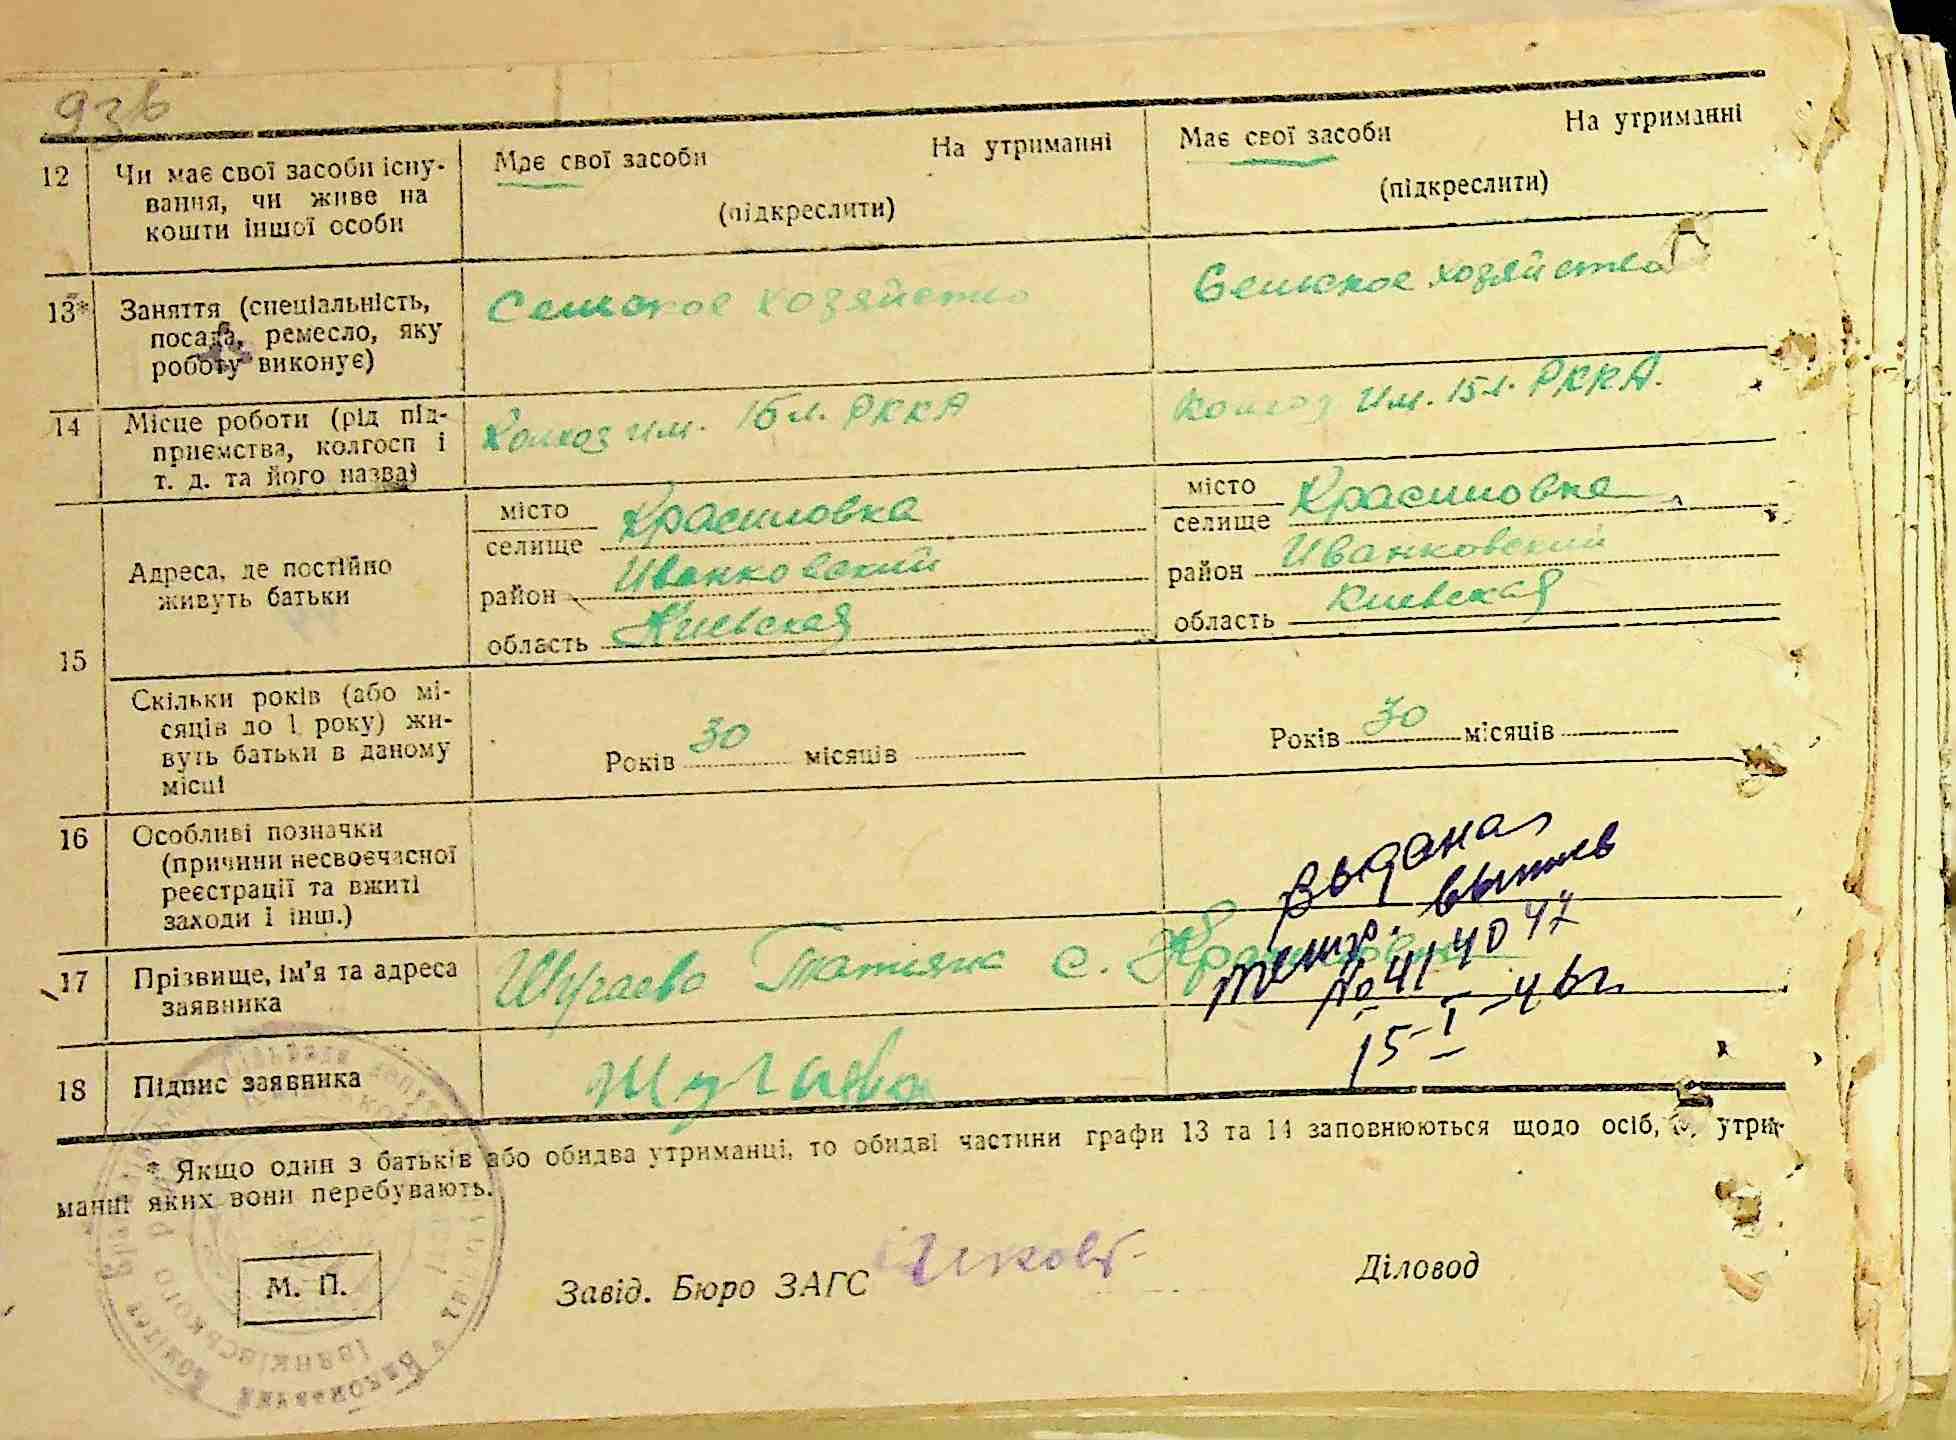 93в
12 Чи має свої засоби існу- Має свої засоби На утриманні Має свої засоби На утриманні
вання, чи живе на (підкреслити) (підкреслити)
кошти іншої особи
13* Заняття (спеціальність, Сельское хозяйство Сельское хозяйство
посада, ремесло, яку
роботу виконує)
14 Місце роботи (рід під- Колхоз им. 15 л. РККА Колхоз им. 15 л. РККА.
приємства, колгосп і
т. д. та його назва)
15 Адреса, де постійно
живуть батьки
місто селище Красиловка місто селище Красиловка
район Иванковский район Иванковский
область Киевская область Киевская
Скільки років (або мі-
сяців до 1 року) жи-
вуть батьки в даному
місці
Років 30 місяців Років 30 місяців
16 Особливі позначки
(причини несвоєчасної
реєстрації та вжиті
заходи і інш.)
выдана
№ 414047
15-I-46г.
17 Прізвище, ім'я та адреса Шугаева Татияна с.
заявника
18 Підпис заявника Шугаева
* Якщо один з батьків або обидва утриманці, то обидві частини графи 13 та 14 заповнюються щодо осіб, утри-
манні яких вони перебувають.
М. П. Завід. Бюро ЗАГС Діловод